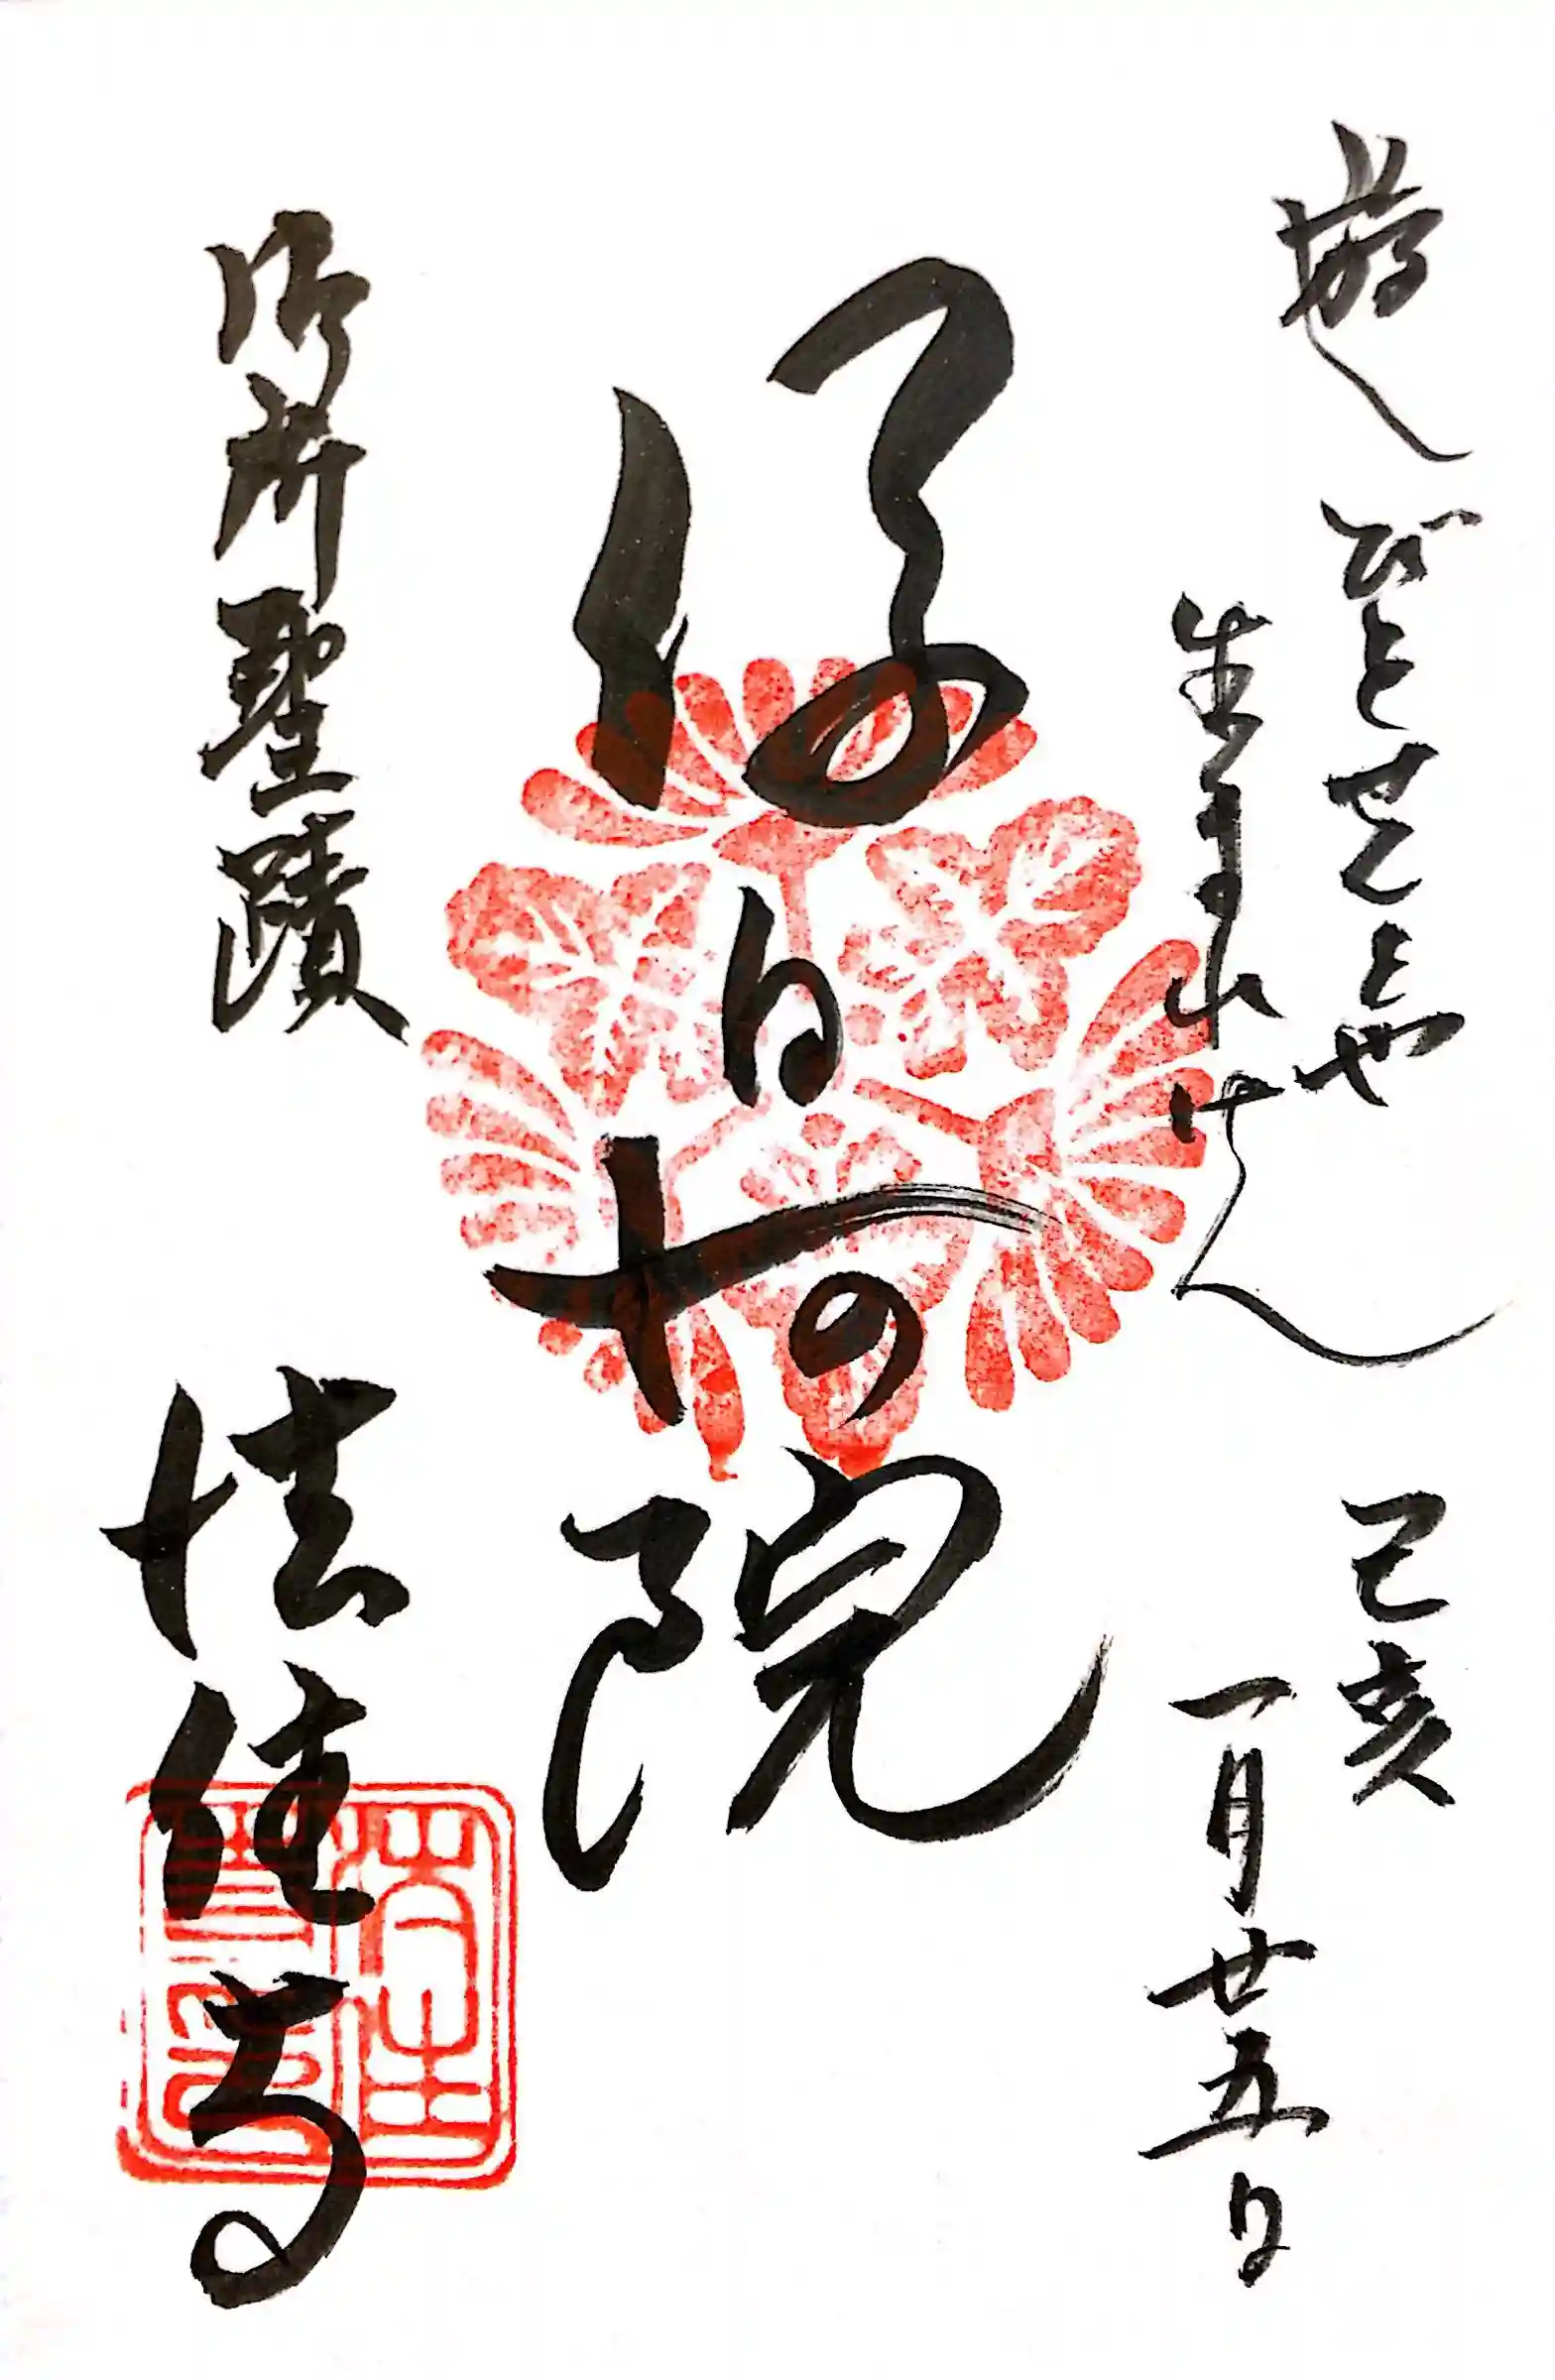 遊びをせんとや
生まれけん
己亥
一月廿五日
後白河院
御所聖蹟
法住寺